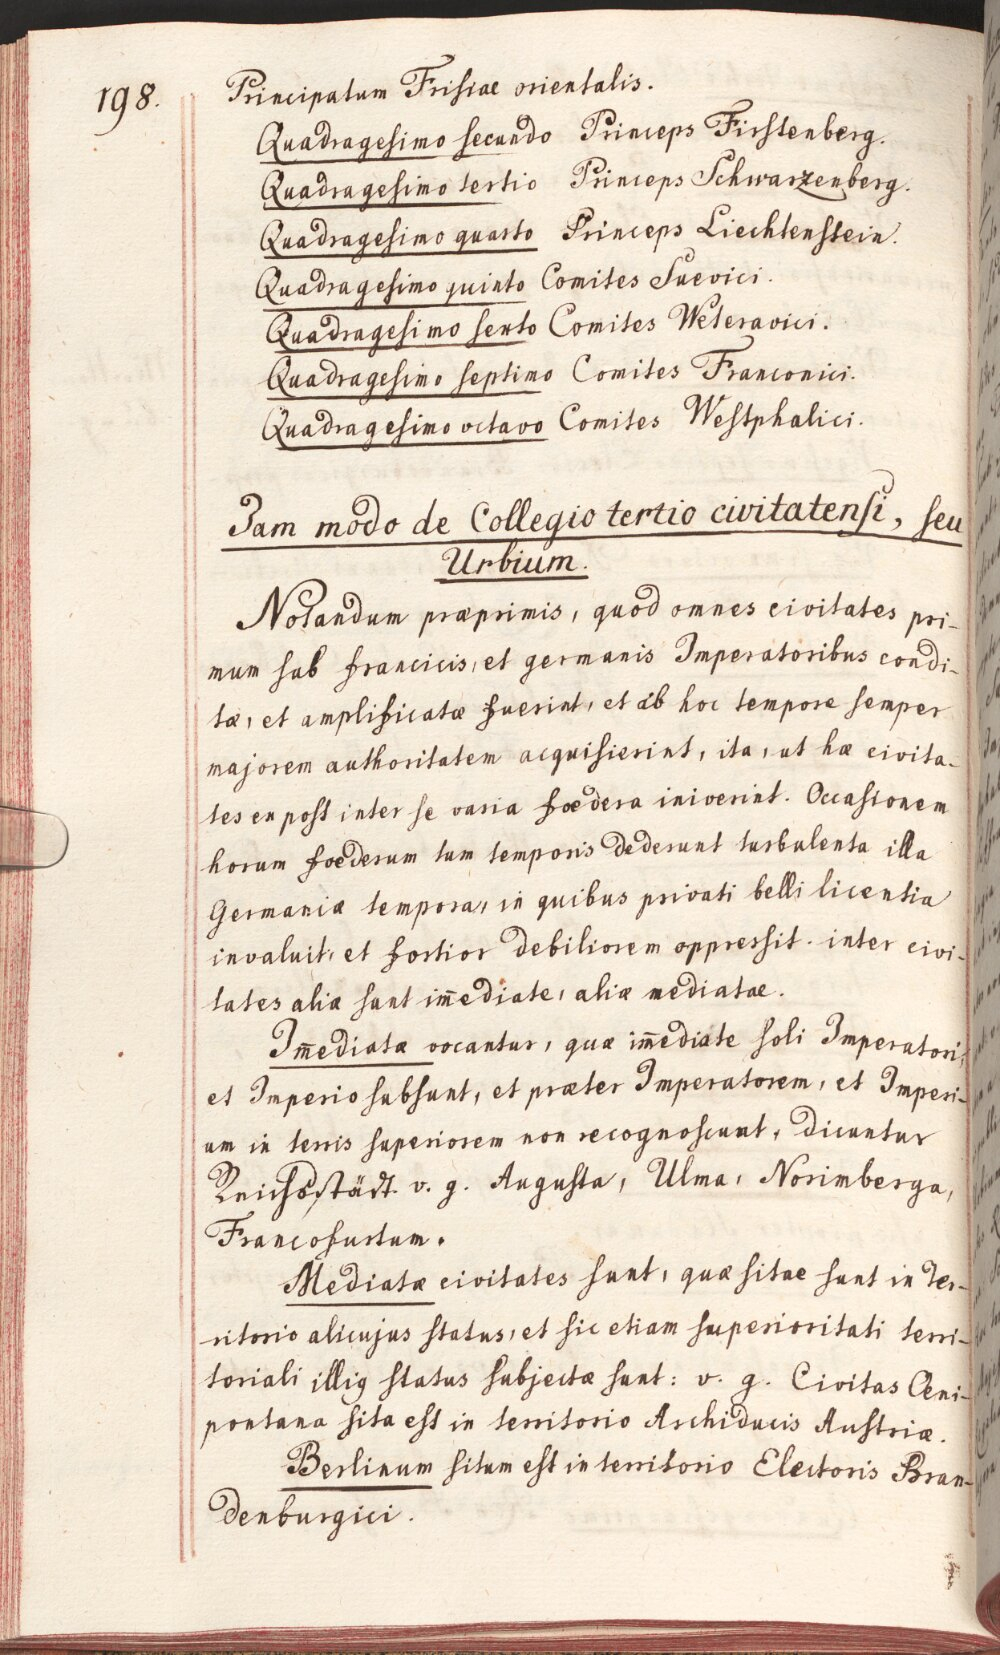 198.
Principatum Frisiae orientalis.
Quadragesimo secundo Princeps Firstenberg.
Quadragesimo tertio Princeps Schwarzenberg.
Quadragesimo quarto Princeps Liechtenstein.
Quadragesimo quinto Comites Suevici.
Quadragesimo sexto Comites Weteravici.
Quadragesimo septimo Comites Franconici.
Quadragesimo octavo Comites Westphalici.
Jam modo de Collegio tertio civitatensi, seu
Urbium.
Notandum præprimis, quod omnes civitates pri-
mum sub francicis, et germanis Imperatoribus condi-
tæ, et amplificatæ fuerint, et ab hoc tempore semper
majorem authoritatem acquisierint, ita, ut hæ civita-
tes ex post inter se varia fœdera iniverint. Occasionem
horum foederum tum temporis dederunt turbulenta illa
Germaniæ tempora, in quibus privati belli licentia
invaluit, et fortior debiliorem oppressit. inter civi-
tates aliæ sunt im̄ediate, aliæ mediatae.
Im̄ediatæ vocantur, quæ im̄ediate soli Imperatori,
et Imperio subsunt, et præter Imperatorem, et Imperi-
um in terris superiorem non recognoscunt, dicuntur
Reichsstädt. v. g. Augusta, Ulma, Norimberga,
Francofurtum.
Mediatæ civitates sunt, quæ sitae sunt in Ter-
ritorio alicujus status, et sic etiam superioritati terri-
toriali illig status subjectæ sunt: v. g. Civitas Œni-
pontana sita est in territorio Archiducis Austriæ.
Berlinum situm est in territorio Electoris Bran-
denburgici.